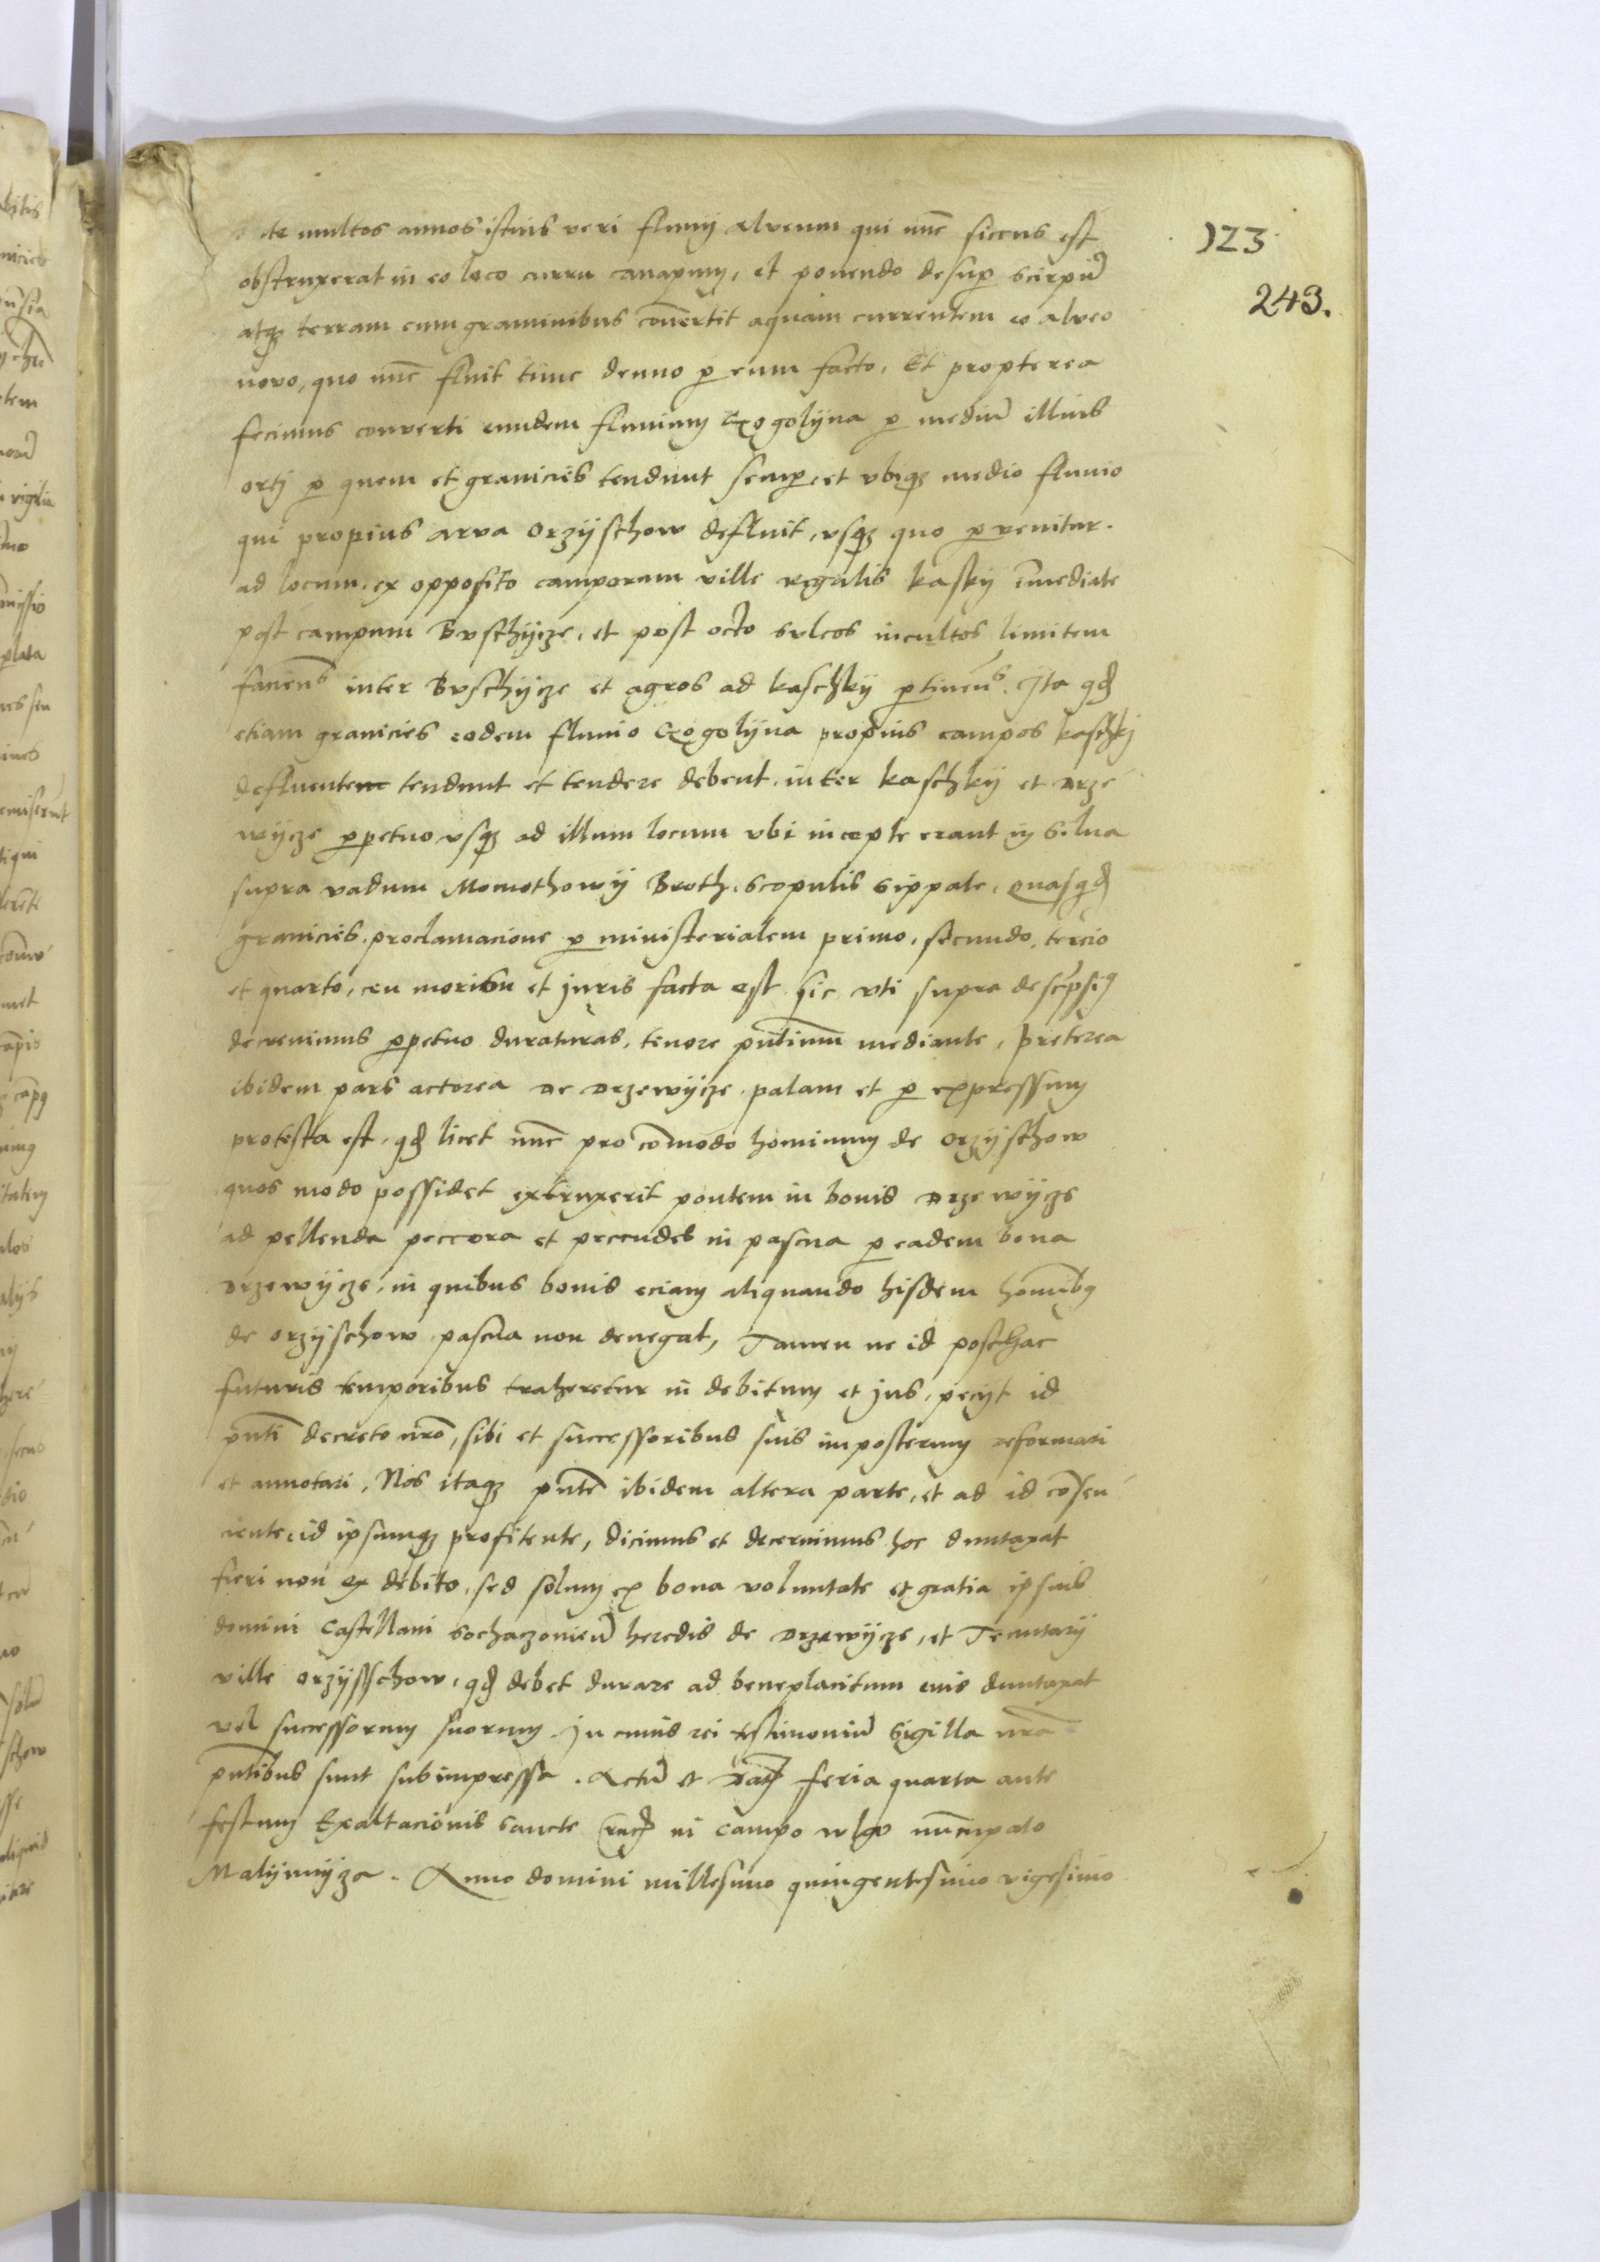 123
243.
ante multos annos istius veri fluvij alveum qui nūc siccus est
obstruxerat in eo loco curru canapum, et ponendo desup scirpū
atq3 terram cum graminibus cōvertit aquam currentem eo alveo
novo, quo nūc fluit tunc denuo p eum facto, Et propterea
fecimus converti eundem fluvium Exogolÿna p mediū illius
ortj p quem et granicies tendunt semp, et vbiq3 medio fluvio
qui propius arva Orzÿschow defluit, vsq3 quo pvenitur.
ad locum, ex opposito camporum ville regalis kaskÿ īmediate
post campum Bvschÿcze, et post octo sulcos incultos limitem
facieñs inter Bvschÿcze et agros ad kaschkÿ ptineñs. Jta qd
etiam granicies eodem fluvio Exogolÿna propius campos kaschkj
defluentem tendunt et tendere debent, inter kaschkÿ et Drze
wÿcze ppetuo vsq3 ad illum locum vbi incepte erant in silva
supra vadum Momothowÿ Broth, scopulis sippate, Quasqd
granicies, proclamacione p ministerialem primo, secundo, tercio
et quarto, ceu moribu et juris facta est sic vti supra descpsi9
decrevimus ppetuo duraturas, tenore pn̄tium mediante, Preterea
ibidem pars actorea de Drzewÿcze palam et p expressum
protesta est, qd licet nūc pro cōmodo hominum de Orzÿschow
quos modo possidet extruxerit pontem in bonis Drzewÿcze
ad pellenda peccora et peccudes in pascua p eadem bona
Drzewÿcze, in quibus bonis eciam aliquando hisdem homīb9
de Orzÿschow pascua non denegat, Tamen ne id posthac
futuris temporibus traheretur in debitum et jus, pecijt id
pn̄ti decreto nrō, sibi et successoribus suis imposterum reformari
et annotari, Nos itaq3 pn̄te ibidem altera parte, et ad id cōsen
ciente, id ipsumq3 profitente, dicimus et decernimus hoc duntaxat
fieri non ex debito, sed solum ex bona voluntate et gratia ipsius
domini Castellani sochaczovieñ heredis de Drzewÿcze, et Tenutarij
ville Orzÿsschow, qd debet durare ad beneplacitum eius duntaxat
vel successorum suorum. Jn cuius rei testimoniū Sigilla nrā
pn̄tibus sunt subimpressa. Actū et Dat feria quarta ante
festum Exaltacionis sancte crucis in campo wlgo nūcupato
Malÿmÿza. Anno domini millesimo quingentesimo vigesimo